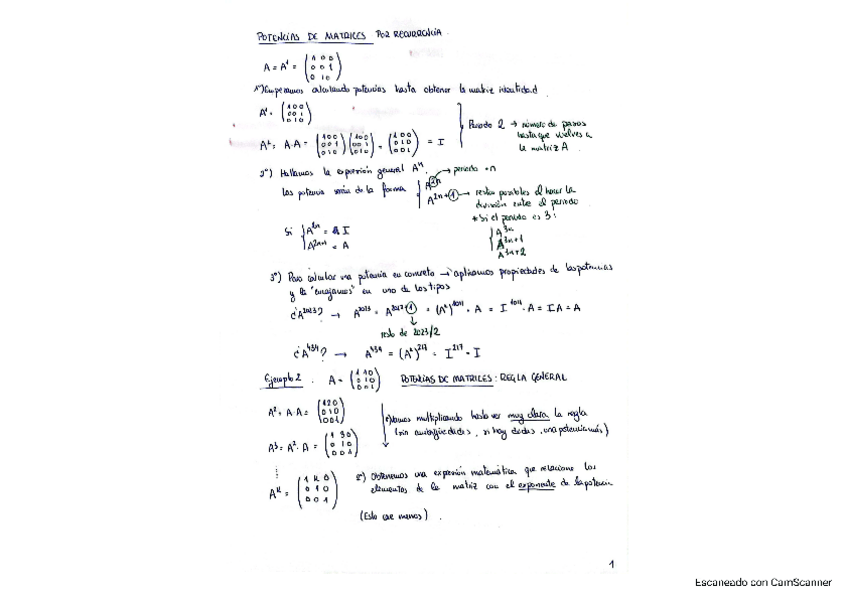 POTENCIAS DE MATRICES POR RECURRENCIA.
A = A¹ = (1 0 0 / 0 0 1 / 0 1 0)
1º) Empezamos calculando potencias hasta obtener la matriz identidad
A¹ = (1 0 0 / 0 0 1 / 0 1 0)
Periodo 2 → número de pasos hasta que vuelves a la matriz A.
A² = A·A = (1 0 0 / 0 0 1 / 0 1 0) (1 0 0 / 0 0 1 / 0 1 0) = (1 0 0 / 0 1 0 / 0 0 1) = I
2º) Hallamos la expresión general Aⁿ.
Las potencias serán de la forma
A²ⁿ → periodo · n
A²ⁿ⁺¹ → restos posibles al hacer la división entre el periodo
* Si el periodo es 3:
A³ⁿ
A³ⁿ⁺¹
A³ⁿ⁺²
Si A²ⁿ = I
A²ⁿ⁺¹ = A
3º) Para calcular una potencia en concreto → aplicamos propiedades de las potencias
y la "encajamos" en uno de los tipos
¿A²⁰²³? → A²⁰²³ = = (A²)¹⁰¹¹ · A = I¹⁰¹¹ · A = I A = A
resto de 2023/2
¿A⁴³⁴? → A⁴³⁴ = (A²)²¹⁷ = I²¹⁷ = I
Ejemplo 2. A = (1 1 0 / 0 1 0 / 0 0 1) POTENCIAS DE MATRICES: REGLA GENERAL
A² = A·A = (1 2 0 / 0 1 0 / 0 0 1)
Vamos multiplicando hasta ver muy clara la regla
(sin ambigüedades, si hay dudas, una potencia más)
A³ = A²·A = (1 3 0 / 0 1 0 / 0 0 1)
⋮
Aᵏ = (1 k 0 / 0 1 0 / 0 0 1)
2º) Obtenemos una expresión matemática que relacione los
elementos de la matriz con el exponente de la potencia
(Esto cae menos).
1
Escaneado con CamScanner